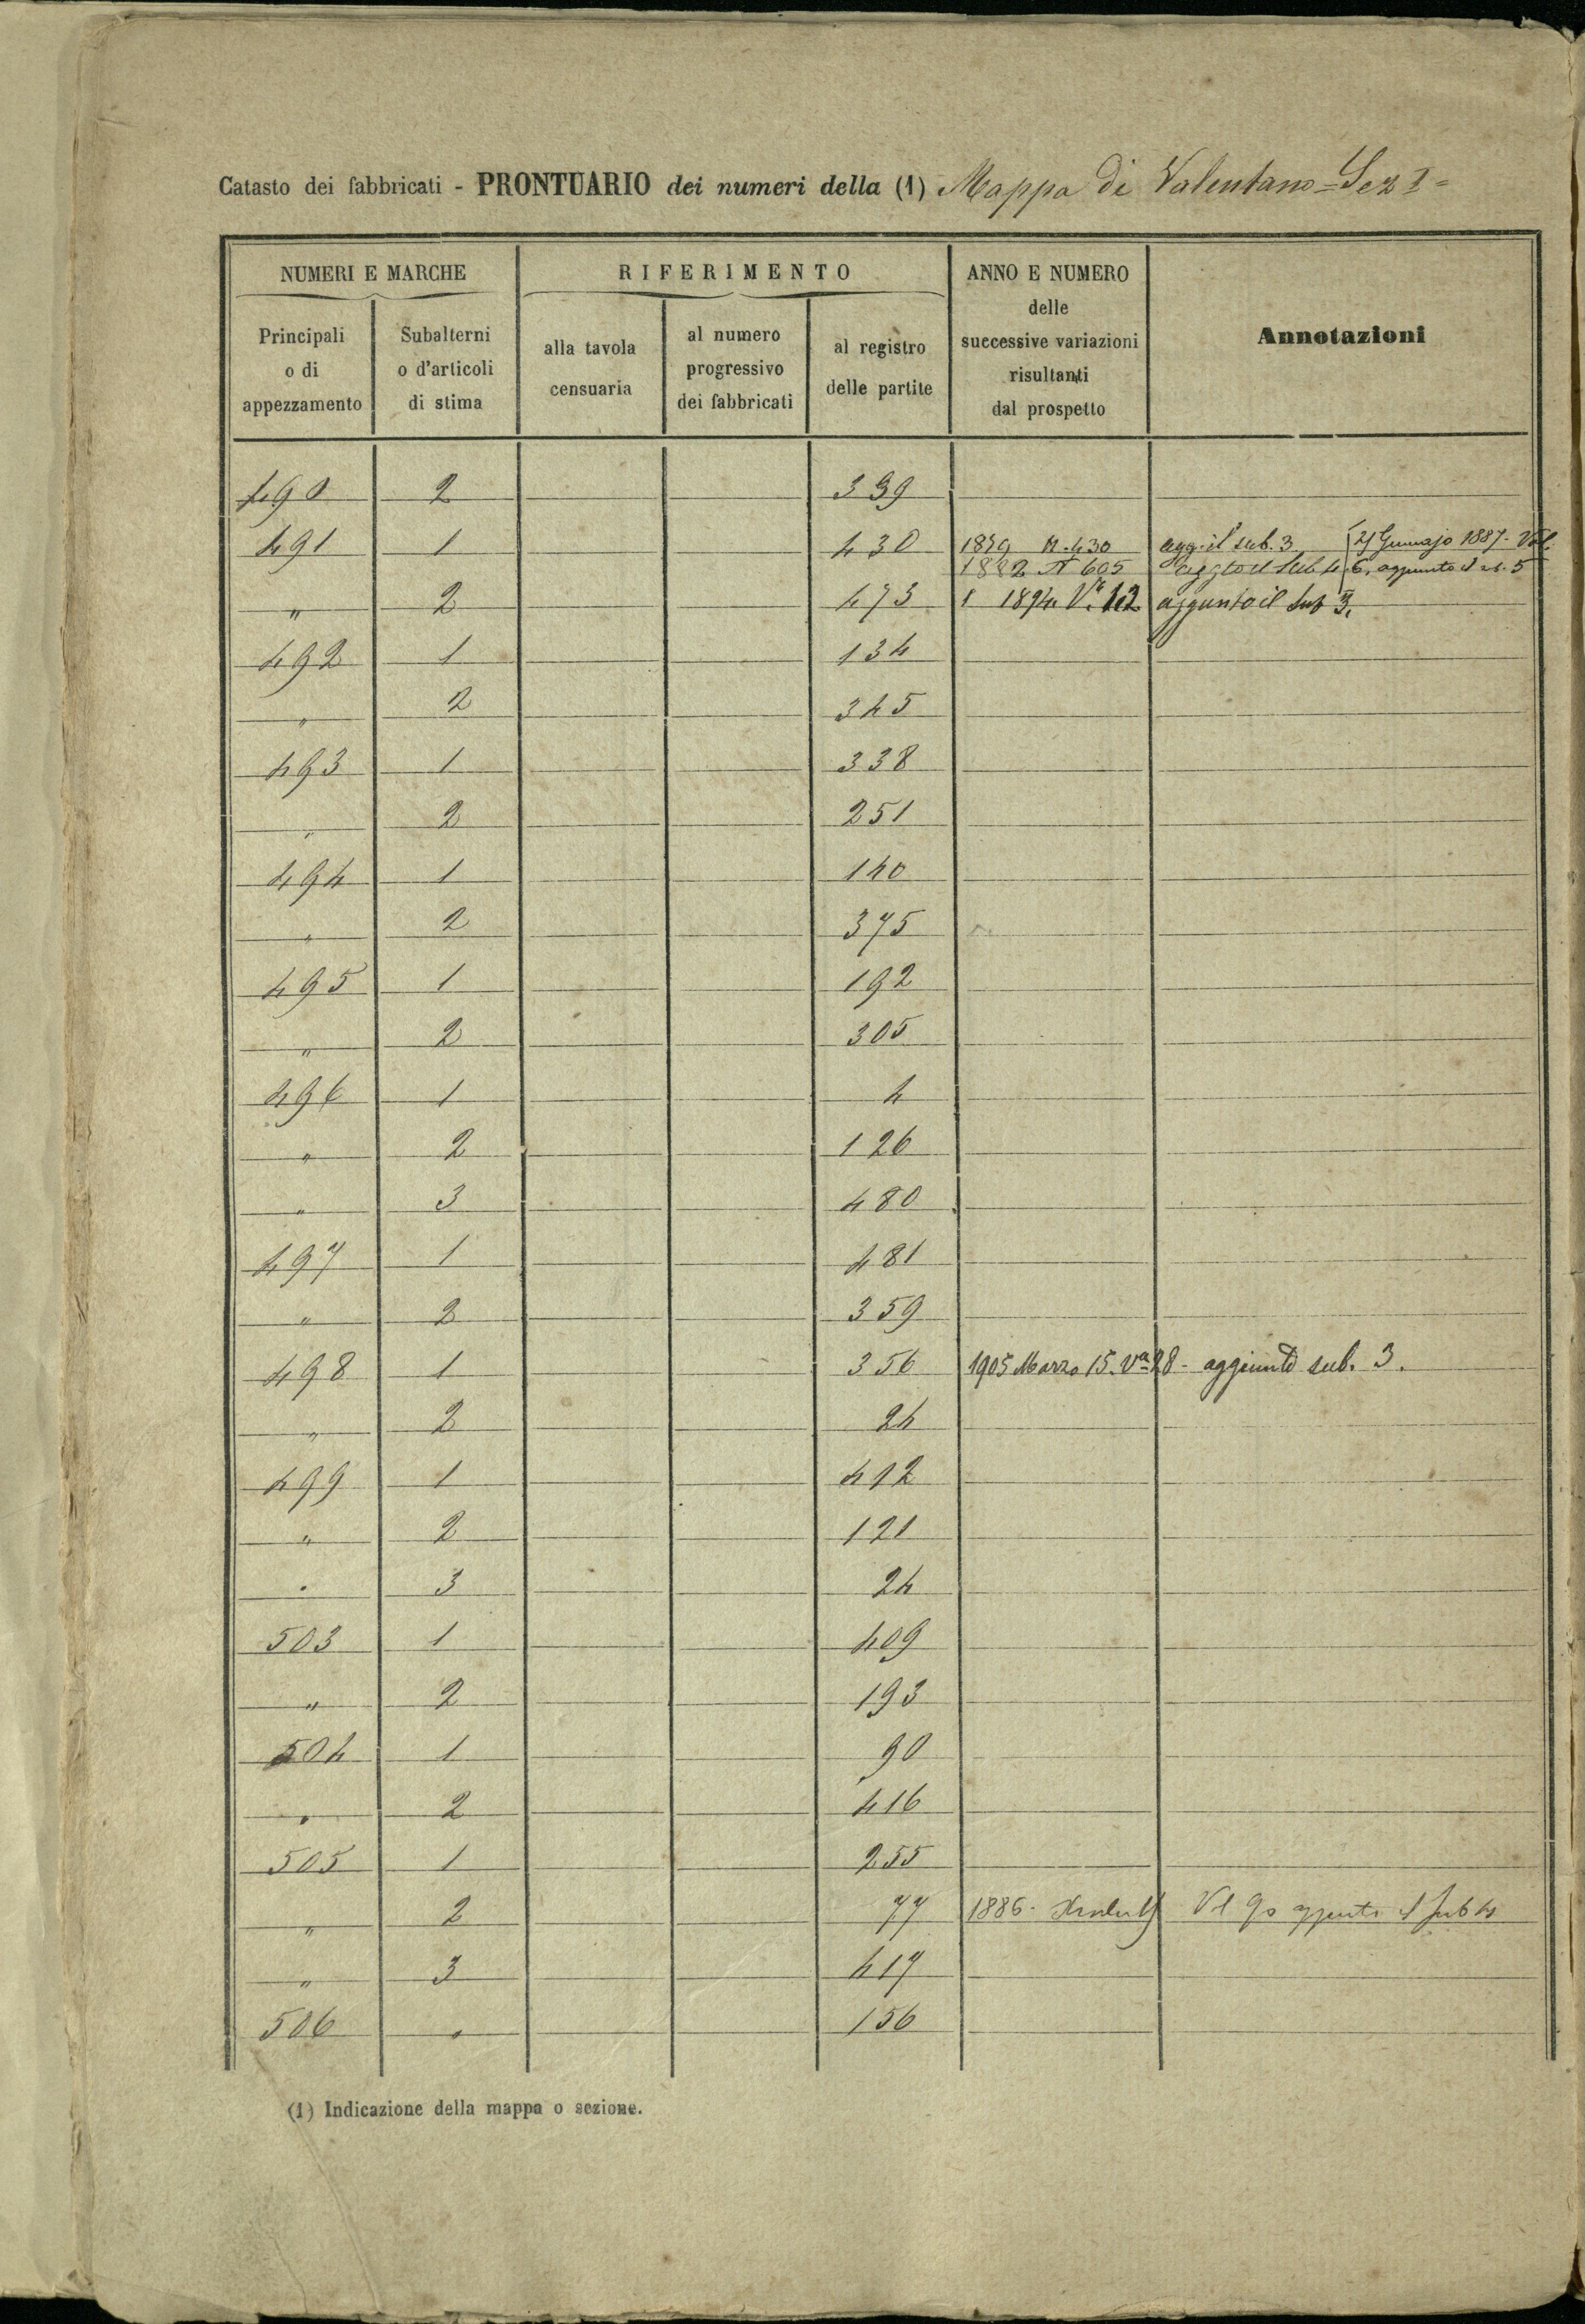 Catasto dei fabbricati - PRONTUARIO dei numeri della (1) Mappa di Valentano = Sez I =
NUMERI E MARCHE
RIFERIMENTO
ANNO E NUMERO
delle
successive variazioni
risultanti
dal prospetto
Annotazioni
Principali
o di
appezzamento
Subalterni
o d'articoli
di stima
alla tavola
censuaria
al numero
progressivo
dei fabbricati
al registro
delle partite
490 2 339
491 1 430 1879 N. 430 agg. il sub. 3 1887
1882 N 605 6, aggiunto il sub. 5
" 2 473 1894 V. 12 aggiunto il sub 3.
492 1 134
" 2 345
493 1 338
" 2 251
494 1 140
" 2 375
495 1 192
" 2 305
496 1 4
" 2 126
" 3 480
497 1 481
" 2 359
498 1 356 1905 Marzo 15. Va 28 - aggiunto sub. 3.
" 2 24
499 1 412
" 2 121
" 3 24
503 1 409
" 2 193
504 1 90
" 2 416
505 1 255
" 2 77 1886 -
" 3 417
506 " 156
(1) Indicazione della mappa o sezione.